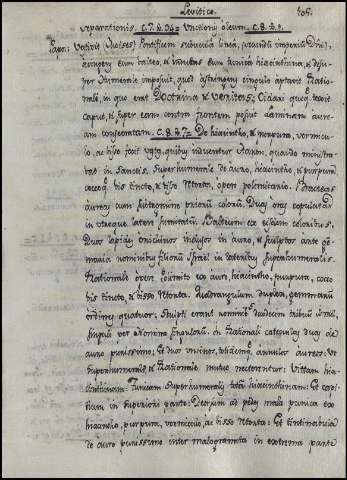 Levitico.
separationis. C. 7. v. 34 = Unctionis oleum. C. 8. v. 2.
Vestivit Moises Pontificem subucula linea, secundum imperium Dni,
accingens eum balteo, & induens eum tunica hiacinthina, & desu-
per Humerale imposuit, quod astringens cingulo aptavit Ratio-
nali, in quo erat Doctrina & Veritas: Cidari quoq. texit
caput, & super eam contra frontem posuit laminam aure-
am consecratam. C. 8. v. 7 = De hiacintho, & purpura, vermicu-
lo, ac bisso fecit vestes, quibus indueretur Aaron, quando ministra-
bat in Sanctis. Superhumerale de auro, hiacintho, & purpura,
coccoq. bis tincto, & bisso retorta, opere polimitario. Bracteas
aureas cum subtegmine priorum colorum. Duas oras copulatas
in utroque latere summitatum. Balteum ex eisdem coloribus.
Duos lapides onichinos inclusos in auro, & sculptos arte ge-
maria nominibus filiorum Israel in lateribus Superhumeralis.
Rationale opere polimito ex auro, hiacintho, purpura, cocco
bis tincto, & bisso retorta. Quadrangulum duplex, gemmarum
ordines quatuor. Sculpti erant nominibus duodecim tribuum Israel,
singuli per nomina singulorum. In Rationali catenulas duas de
auro purissimo; Et duos uncinos, totidemq. annulos aureos. Ut
Superhumerale, & Rationale mutuo necterentur: Vittam hia-
cinthinam. Tunicam Superhumeralis totam hiacinthinam: Et capi-
tium in superiori parte: Deorsum ad pedes mala punica ex
hiacintho, purpura, vermiculo, ac bisso retorta: Et tintinabula
de auro purissimo inter malogranata in extrema parte